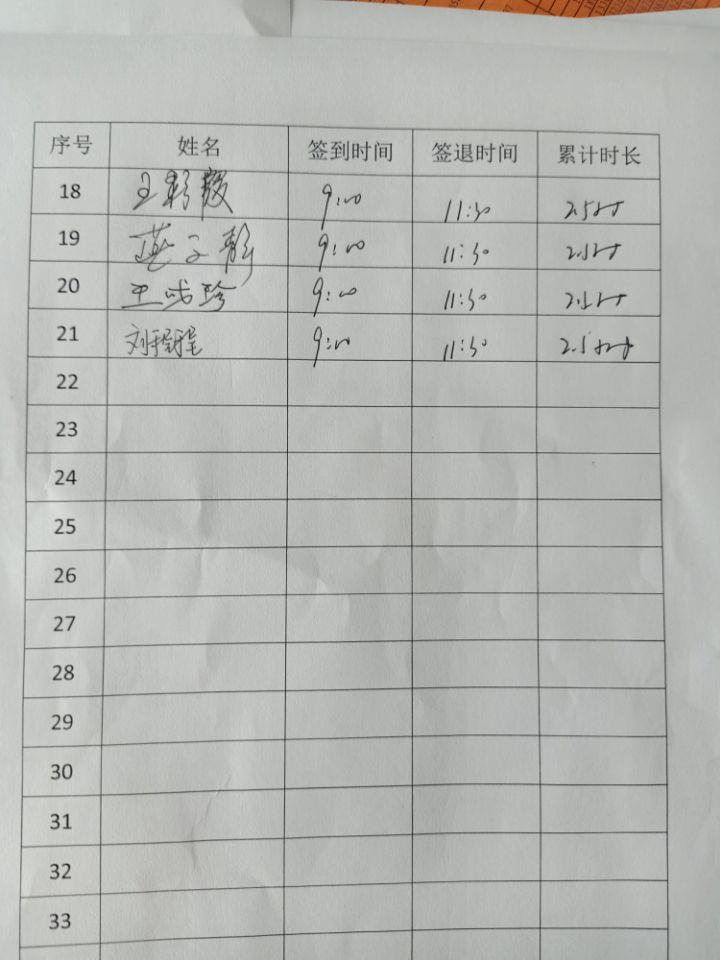 序号 姓名 签到时间 签退时间 累计时长
18 9:00 11:30 2.5时
19 燕子静 9:00 11:30 2.5时
20 9:00 11:30 2.5时
21 刘程程 9:00 11:30 2.5时
22
23
24
25
26
27
28
29
30
31
32
33